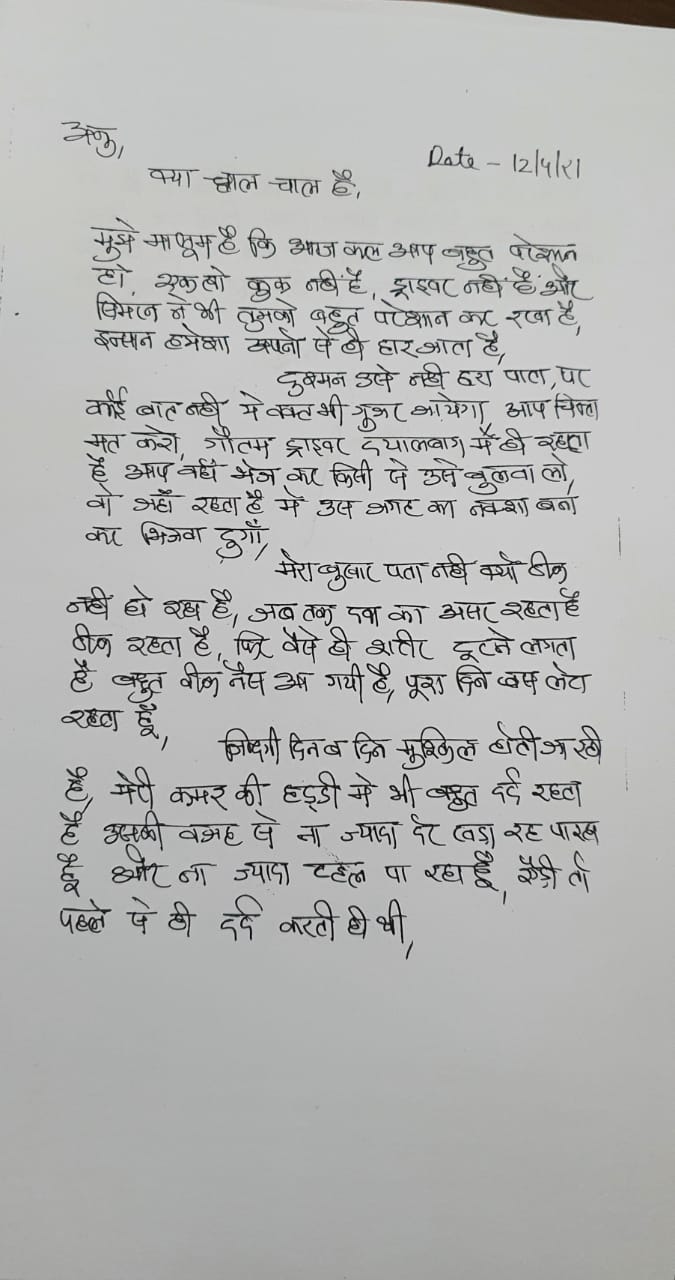 अनु,
Date - 12/4/21
क्या हाल चाल है,
मुझे मालूम है कि आज कल आप बहुत परेशान
हो, एक तो कुक नही है, ड्राइवर नही है और
ने भी तुमको बहुत परेशान कर रखा है,
इन्सान हमेशा अपनो से ही हार जाता है,
दुश्मन उसे नही हरा पाता, पर
कोई बात नही ये वक्त भी गुजर जायेगा, आप चिन्ता
मत करो, गौतम ड्राइवर दयालबाग मे ही रहता
है आप वहाँ भेज कर किसी से उसे बुलवा लो,
वो जहाँ रहता है मै उस जगह का नक्शा बना
कर भिजवा दुगाँ,
मेरा बुखार पता नही क्यो ठीक
नही हो रहा है, जब तक दवा का असर रहता है
ठीक रहता है, फिर वैसे ही शरीर टूटने लगता
है बहुत वीक नैस आ गयी है, पूरा दिन बस लेटा
रहता हूँ,
जिन्दगी दिन ब दिन मुश्किल होती जा रही
है, मेरी कमर की हड्डी मे भी बहुत दर्द रहता
है उसकी वजह से ना ज्यादा देर खड़ा रह पा रहा
हूँ और ना ज्यादा टहल पा रहा हूँ, ऐड़ी तो
पहले से ही दर्द करती ही थी,